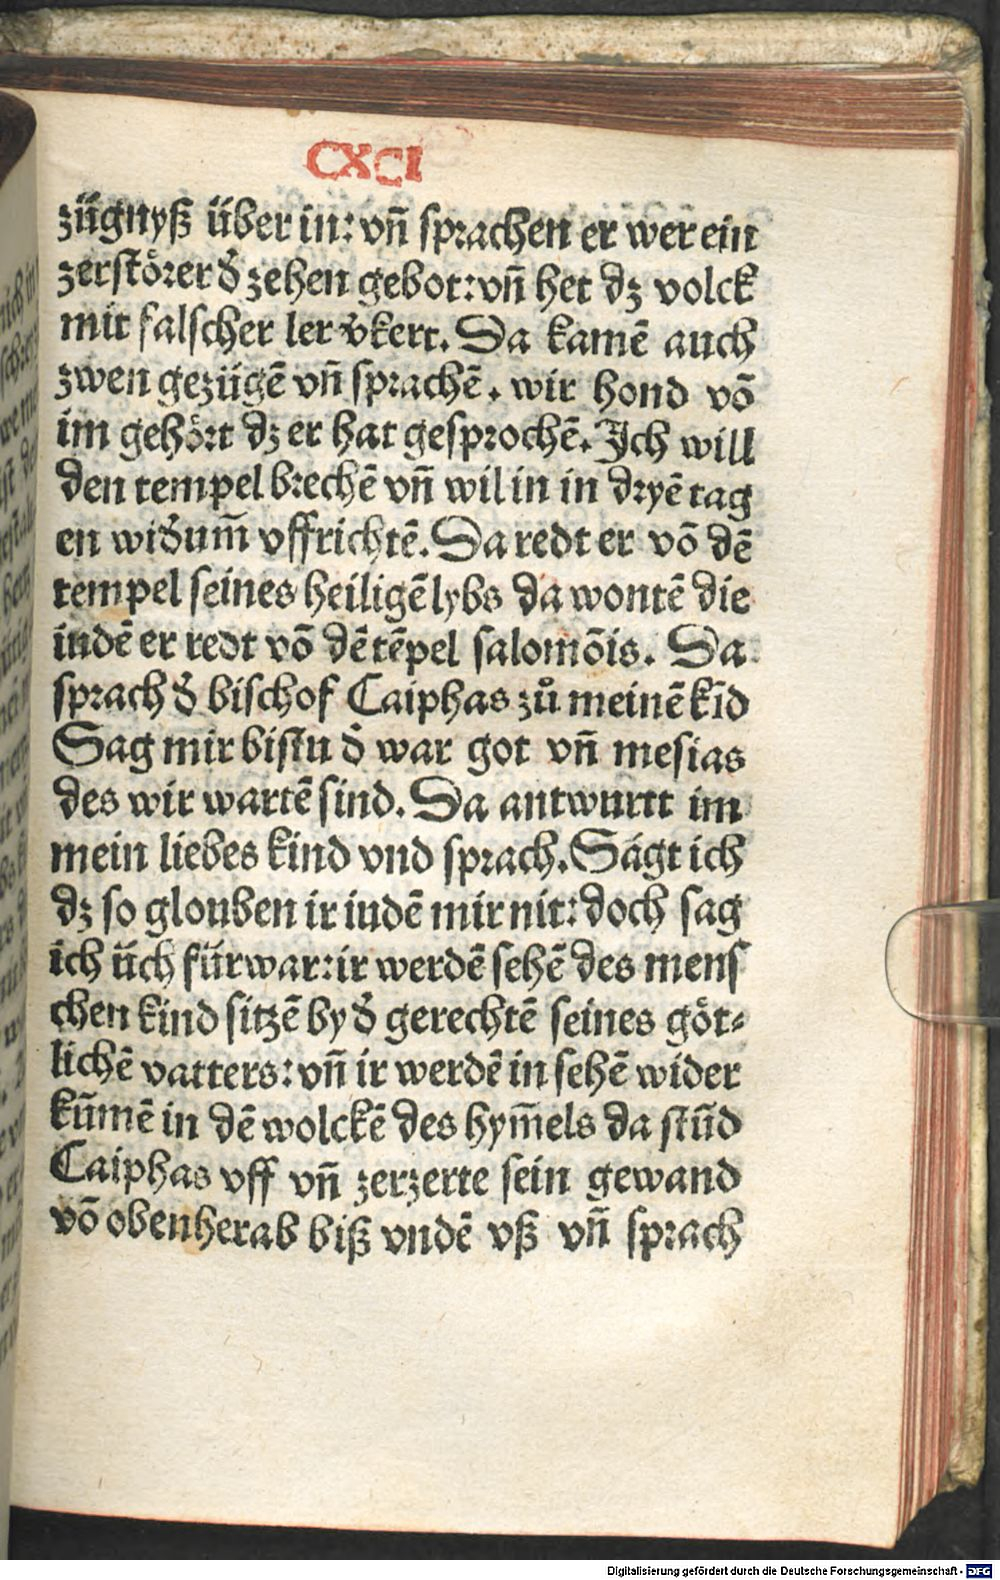 CXCI
zügnyß über in: vñ sprachen er wer ein
zerstörer d̕ zehen gebot: vñ het dz volck
mit falscher ler v̕kert. Da kamē auch
zwen gezügē vñ sprachē. wir hond vō
im gehört dz er hat gesprochē. Ich will
den tempel brechē vñ wil in in dryē tag
en wid̕um̄ vffrichtē. Da redt er vō dē
tempel seines heiligē lybs da wontē die
iudē er redt vō dē tēpel salomōis. Da
sprach d̕ bischof Caiphas zů meinē kīd
Sag mir bistu d̕ war got vñ mesias
des wir wartē sind. Da antwurtt im
mein liebes kind vnd sprach. Sägt ich
dz so glouben ir iudē mir nit: doch sag
ich üch fürwar: ir werdē sehē des mens
chen kind sitzē by d̕ gerechtē seines göt⸗
lichē vatters: vñ ir werdē in sehē wider
kūmē in dē wolckē des hym̄els da stūd
Caiphas vff vñ zerzerte sein gewand
vō obenherab biß vndē vß vñ sprach
Digitalisierung gefördert durch die Deutsche Forschungsgemeinschaft - DFG